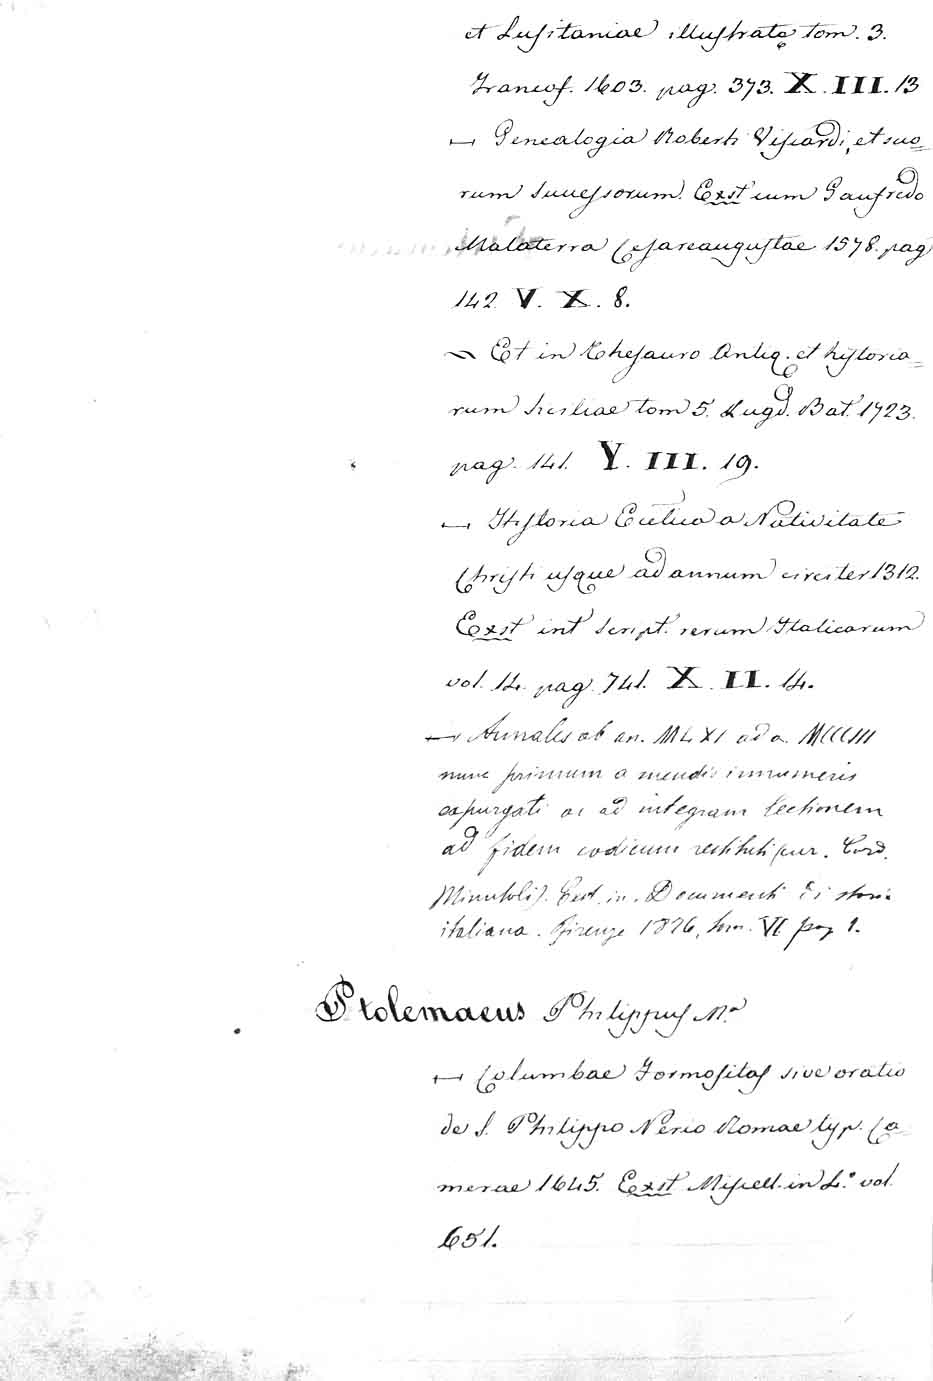 et Lusitaniae illustratę tom. 3.
Francof. 1603. pag. 373. X. III. 13
Genealogia Roberti Viscardi, et suo=
rum Successorum. Exst cum Gaufredo
Malaterra Cesareaugustae 1578. pag
142 V. X. 8.
Et in Thesauro Antiq. et historia=
rum Siciliae tom 5. Lugd. Bat. 1723.
pag. 141. Y. III. 19.
Historia Eccl.ca a Nativitate
Christi usque ad annum circiter 1312.
Exst int script. rerum Italicarum
vol. 14. pag. 741. X. II. 14.
Annales ab an. MLXI ad a. MCCCIII
nunc primum a mendis innumeris
expurgati ac ad integram lectionem
ad fidem codicum restituti cur. Card.
Minutoli). Exst. in. Documenti di storia
italiana. Firenze 1876, tom. VI pag 1.
Ptolemaeus Philippus M.a
Columbae Formositas sive oratio
de S. Philippo Nerio Romae typ. Ca=
merae 1645. Exst Miscell. in 4.° vol.
651.